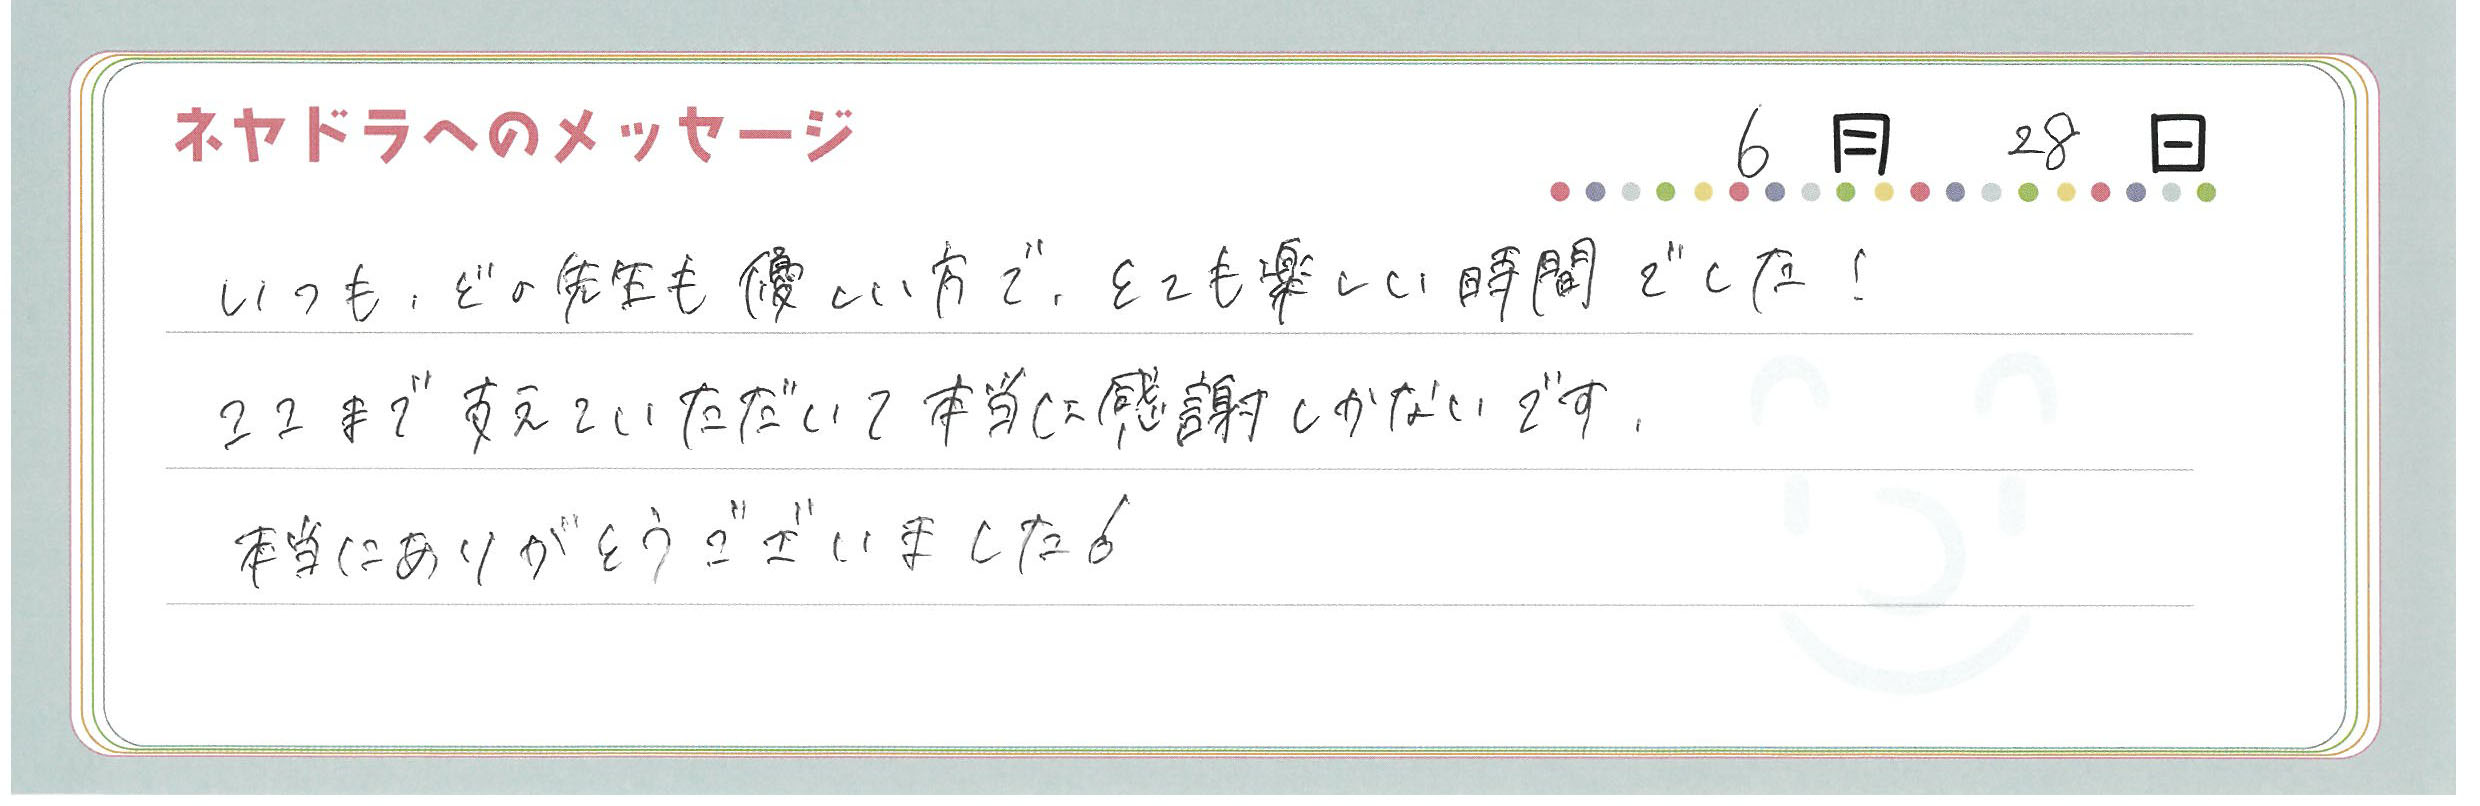 ネヤドラへのメッセージ
6月 28日
いつも、どの先生も優しい方で、とても楽しい時間でした!
ここまで支えていただいて本当に感謝しかないです。
本当にありがとうございました